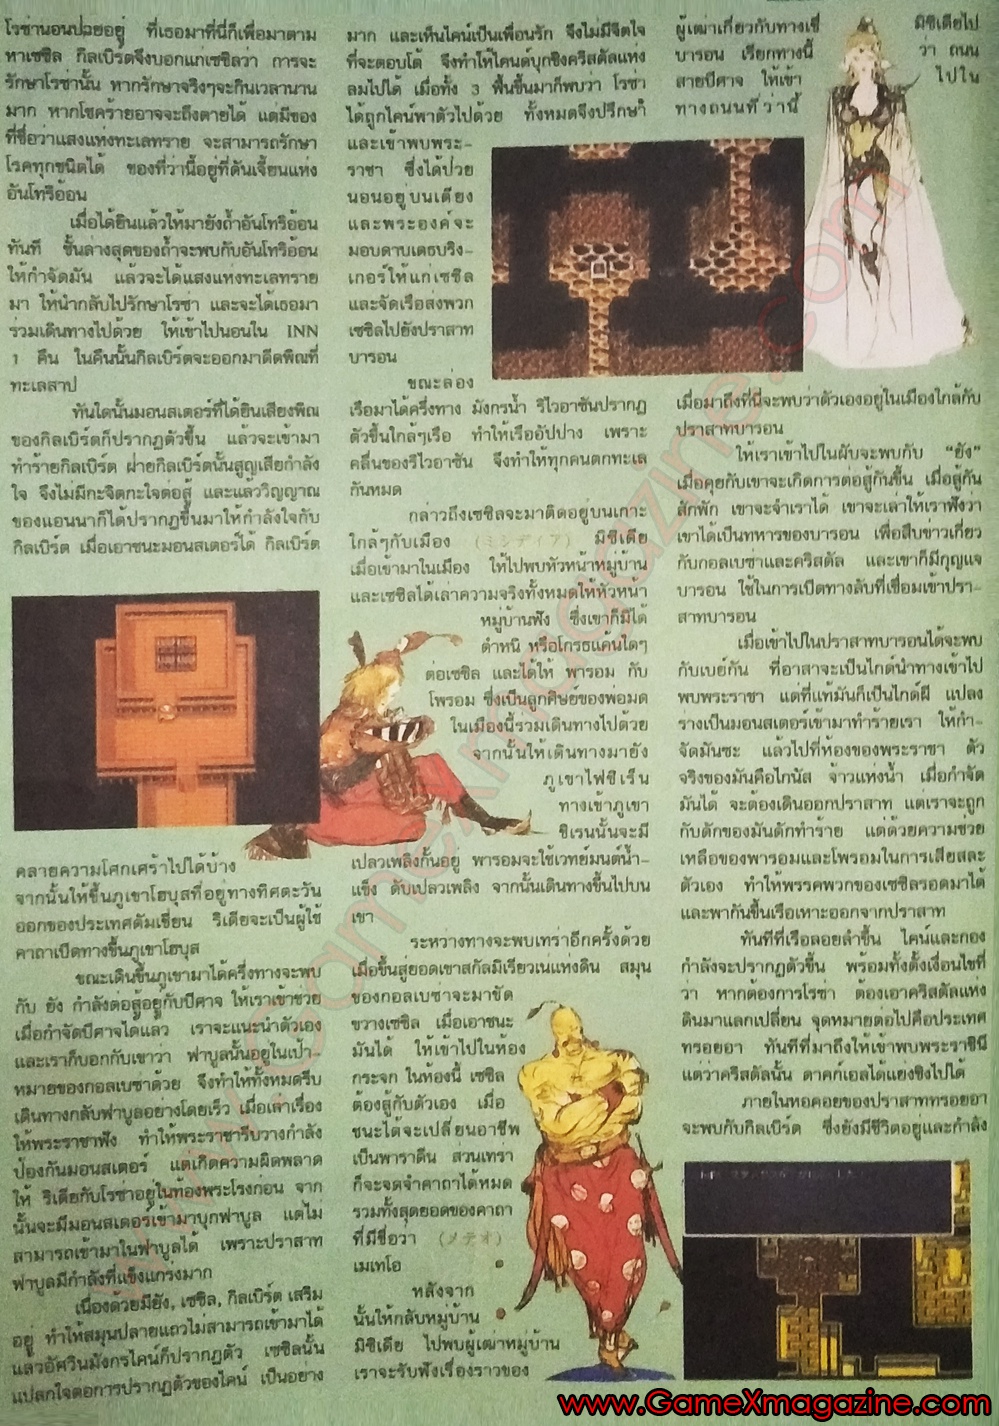 โรซ่านอนป่วยอยู่ ที่เธอมาที่นี่ก็เพื่อมาตาม
หาเซซิล กิลเบิร์ตจึงบอกแก่เซซิลว่า การจะ
รักษาโรซานั้น หากรักษาจริงๆจะกินเวลานาน
มาก หากโชคร้ายอาจจะถึงตายได้ แต่มีของ
ที่ชื่อว่าแสงแห่งทะเลทราย จะสามารถรักษา
โรคทุกชนิดได้ ของที่ว่านี้อยู่ที่ดันเจี้ยนแห่ง
อันโทริอ้อน
เมื่อได้ยินแล้วให้มายังถ้ำอันโทริอ้อน
ทันที ชั้นล่างสุดของถ้ำจะพบกับอันโทริอ้อน
ให้กำจัดมัน แล้วจะได้แสงแห่งทะเลทราย
มา ให้นำกลับไปรักษาโรซ่า และจะได้เธอมา
ร่วมเดินทางไปด้วย ให้เข้าไปนอนใน INN
1 คืน ในคืนนั้นกิลเบิร์ตจะออกมาดีดพิณที่
ทะเลสาป
ทันใดนั้นมอนสเตอร์ที่ได้ยินเสียงพิณ
ของกิลเบิร์ตก็ปรากฏตัวขึ้น แล้วจะเข้ามา
ทำร้ายกิลเบิร์ต ฝ่ายกิลเบิร์ตนั้นสูญเสียกำลัง
ใจ จึงไม่มีกะจิตกะใจต่อสู้ และแล้ววิญญาณ
ของแอนนาก็ได้ปรากฏขึ้นมาให้กำลังใจกับ
กิลเบิร์ต เมื่อเอาชนะมอนสเตอร์ได้ กิลเบิร์ต
คลายความโศกเศร้าไปได้บ้าง
จากนั้นให้ขึ้นภูเขาโฮบุสที่อยู่ทางทิศตะวัน
ออกของประเทศดัมเชียน ริเดียจะเป็นผู้ใช้
คาถาเปิดทางขึ้นภูเขาโฮบุส
ขณะเดินขึ้นภูเขามาได้ครึ่งทางจะพบ
กับ ยัง กำลังต่อสู้อยู่กับปีศาจ ให้เราเข้าช่วย
เมื่อกำจัดปีศาจได้แล้ว เราจะแนะนำตัวเอง
และเราก็บอกกับเขาว่า ฟาบูลนั้นอยู่ในเป้า-
หมายของกอลเบซ่าด้วย จึงทำให้ทั้งหมดรีบ
เดินทางกลับฟาบูลอย่างโดยเร็ว เมื่อเล่าเรื่อง
ให้พระราชาฟัง ทำให้พระราชารีบวางกำลัง
ป้องกันมอนสเตอร์ แต่เกิดความผิดพลาด
ให้ ริเดียกับโรซ่าอยู่ในท้องพระโรงก่อน จาก
นั้นจะมีมอนสเตอร์เข้ามาบุกฟาบูล แต่ไม่
สามารถเข้ามาในฟาบูลได้ เพราะปราสาท
ฟาบูลมีกำลังที่แข็งแกร่งมาก
เนื่องด้วยมียัง, เซซิล, กิลเบิร์ต เสริม
อยู่ ทำให้สมุนปลายแถวไม่สามารถเข้ามาได้
แล้วอัศวินมังกรไคน์ก็ปรากฏตัว เซซิลนั้น
แปลกใจต่อการปรากฏตัวของไคน์ เป็นอย่าง
มาก และเห็นไคน์เป็นเพื่อนรัก จึงไม่มีจิตใจ
ที่จะตอบโต้ จึงทำให้ไคนต์บุกชิงคริสตัลแห่ง
ลมไปได้ เมื่อทั้ง 3 ฟื้นขึ้นมาก็พบว่า โรซ่า
ได้ถูกไคน์พาตัวไปด้วย ทั้งหมดจึงปรึกษา
และเข้าพบพระ-
ราชา ซึ่งได้ป่วย
นอนอยู่บนเตียง
และพระองค์จะ
มอบดาบเดธบริง-
เกอร์ให้แก่เซซิล
และจัดเรือส่งพวก
เซซิลไปยังปราสาท
บารอน
ขณะล่อง
เรือมาได้ครึ่งทาง มังกรน้ำ ริไวอาซันปรากฏ
ตัวขึ้นใกล้ๆเรือ ทำให้เรืออัปปาง เพราะ
คลื่นของริไวอาซัน จึงทำให้ทุกคนตกทะเล
กันหมด
กล่าวถึงเซซิลจะมาติดอยู่บนเกาะ
ใกล้ๆกับเมือง (ミシディア) มิซิเดีย
เมื่อเข้ามาในเมือง ให้ไปพบหัวหน้าหมู่บ้าน
และเซซิลได้เล่าความจริงทั้งหมดให้หัวหน้า
หมู่บ้านฟัง ซึ่งเขาก็มิได้
ตำหนิ หรือโกรธแค้นใดๆ
ต่อเซซิล และได้ให้ พารอม กับ
โพรอม ซึ่งเป็นลูกศิษย์ของพ่อมด
ในเมืองนี้ร่วมเดินทางไปด้วย
จากนั้นให้เดินทางมายัง
ภูเขาไฟซิเร็น
ทางเข้าภูเขา
ซิเรนนั้นจะมี
เปลวเพลิงกั้นอยู่ พารอมจะใช้เวทย์มนต์น้ำ-
แข็ง ดับเปลวเพลิง จากนั้นเดินทางขึ้นไปบน
เขา
ระหว่างทางจะพบเทร่าอีกครั้งด้วย
เมื่อขึ้นสู่ยอดเขาสกัลมิเรียวเน่แห่งดิน สมุน
ของกอลเบซ่าจะมาขัด
ขวางเซซิล เมื่อเอาชนะ
มันได้ ให้เข้าไปในห้อง
กระจก ในห้องนี้ เซซิล
ต้องสู้กับตัวเอง เมื่อ
ชนะได้จะเปลี่ยนอาชีพ
เป็นพาราดีน ส่วนเทรา
ก็จะจดจำคาถาได้หมด
รวมทั้งสุดยอดของคาถา
ที่มีชื่อว่า (メテオ)
เมเทโอ
หลังจาก
นั้นให้กลับหมู่บ้าน
มิซิเดีย ไปพบผู้เฒ่าหมู่บ้าน
เราจะรับฟังเรื่องราวของ
ผู้เฒ่าเกี่ยวกับทางเชื่ มิซิเดียไป
บารอน เรียกทางนี้ ว่า ถนน
สายปีศาจ ให้เข้า ไปใน
ทางถนนที่ว่านี้
เมื่อมาถึงที่นี่จะพบว่าตัวเองอยู่ในเมืองใกล้กับ
ปราสาทบารอน
ให้เราเข้าไปในผับจะพบกับ “ยัง”
เมื่อคุยกับเขาจะเกิดการต่อสู้กันขึ้น เมื่อสู้กัน
สักพัก เขาจะจำเราได้ เขาจะเล่าให้เราฟังว่า
เขาได้เป็นทหารของบารอน เพื่อสืบข่าวเกี่ยว
กับกอลเบซ่าและคริสตัล และเขาก็มีกุญแจ
บารอน ใช้ในการเปิดทางลับที่เชื่อมเข้าปรา-
สาทบารอน
เมื่อเข้าไปในปราสาทบารอนได้จะพบ
กับเบย์กัน ที่อาสาจะเป็นไกด์นำทางเข้าไป
พบพระราชา แต่ที่แท้มันก็เป็นไกด์ผี แปลง
ร่างเป็นมอนสเตอร์เข้ามาทำร้ายเรา ให้กำ-
จัดมันซะ แล้วไปที่ห้องของพระราชา ตัว
จริงของมันคือไกนัส จ้าวแห่งน้ำ เมื่อกำจัด
มันได้ จะต้องเดินออกปราสาท แต่เราจะถูก
กับดักของมันดักทำร้าย แต่ด้วยความช่วย
เหลือของพารอมและโพรอมในการเสียสละ
ตัวเอง ทำให้พรรคพวกของเซซิลรอดมาได้
และพากันขึ้นเรือเหาะออกจากปราสาท
ทันทีที่เรือลอยลำขึ้น ไคน์และกอง
กำลังจะปรากฏตัวขึ้น พร้อมทั้งตั้งเงื่อนไขที่
ว่า หากต้องการโรซ่า ต้องเอาคริสตัลแห่ง
ดินมาแลกเปลี่ยน จุดหมายต่อไปคือประเทศ
ทรอยอา ทันทีที่มาถึงให้เข้าพบพระราชินี
แต่ว่าคริสตัลนั้น ดาคก์เอลได้แย่งชิงไปได้
ภายในหอคอยของปราสาททรอยอา
จะพบกับกิลเบิร์ต ซึ่งยังมีชีวิตอยู่และกำลัง
www.GameXmagazine.com
www.GameXmagazine.com